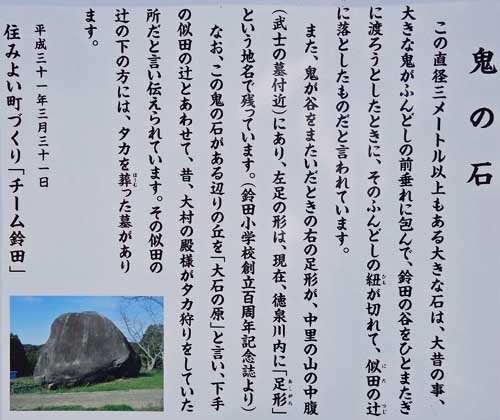 鬼の石
この直径三メートル以上もある大きな石は、大昔の事、
大きな鬼がふんどしの前垂れに包んで、鈴田の谷をひとまたぎ
に渡ろうとしたときに、そのふんどしの紐が切れて、似田の辻
に落としたものだと言われています。
また、鬼が谷をまたいだときの右の足形が、中里の山の中腹
（武士の墓付近）にあり、左足の形は、現在、徳泉川内に「足形」
という地名で残っています。（鈴田小学校創立百周年記念誌より）
なお、この鬼の石がある辺りの丘を「大石の原」と言い、下手
の似田の辻とあわせて、昔、大村の殿様がタカ狩りをしていた
所だと言い伝えられています。その似田の
辻の下の方には、タカを葬った墓があり
ます。
平成三十一年三月三十一日
住みよい町づくり「チーム鈴田」